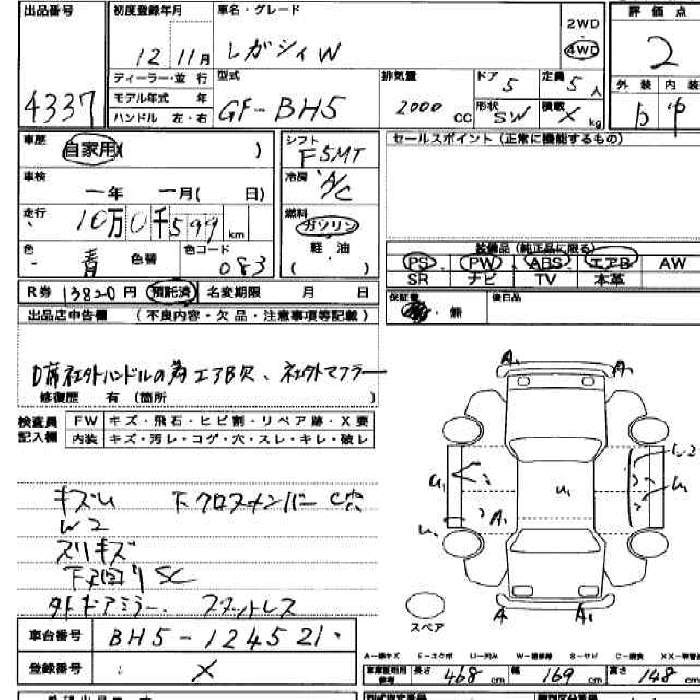 出品番号 初度登録年月 車名・グレード 評価点
12年11月 レガシィW 2WD 4WD 2
4337 ディーラー・並行 型式 排気量 ドア 5 定員 5人 外装 内装
モデル年式 年 GF-BH5 2000cc 形状 SW 積載 X kg
ハンドル 左・右
車歴 自家用( ) シフト F5MT セールスポイント(正常に機能するもの)
車検 ー年 ー月( 日) 冷房 A/C
走行 10万0千599km 燃料 ガソリン
色 青 色替 色コード 083 軽・油 装備品(純正品に限る)
( ) PS PW ABS エアB AW
SR ナビ TV 本革
R券 13820円 預託済 名変期限 月 日 保証書 無 後日品
出品店申告欄 (不良内容・欠品・注意事項等記載)
D席社外ハンドルの為エアB欠、社外マフラー
修復歴 有 (箇所 )
検査員 FW キズ・飛石・ヒビ割・リペア跡・X要
記入欄 内装 キズ・汚レ・コゲ・穴・スレ・キレ・破レ
A₁ A₁
キズU 下クロスメンバーC穴
W2
スリキズ
SC
U₁ U₁ A₁ U₁
A A₁
スペア
車台番号 BH5-124521
登録番号 X
長さ 468cm 幅 169cm 高さ 148cm